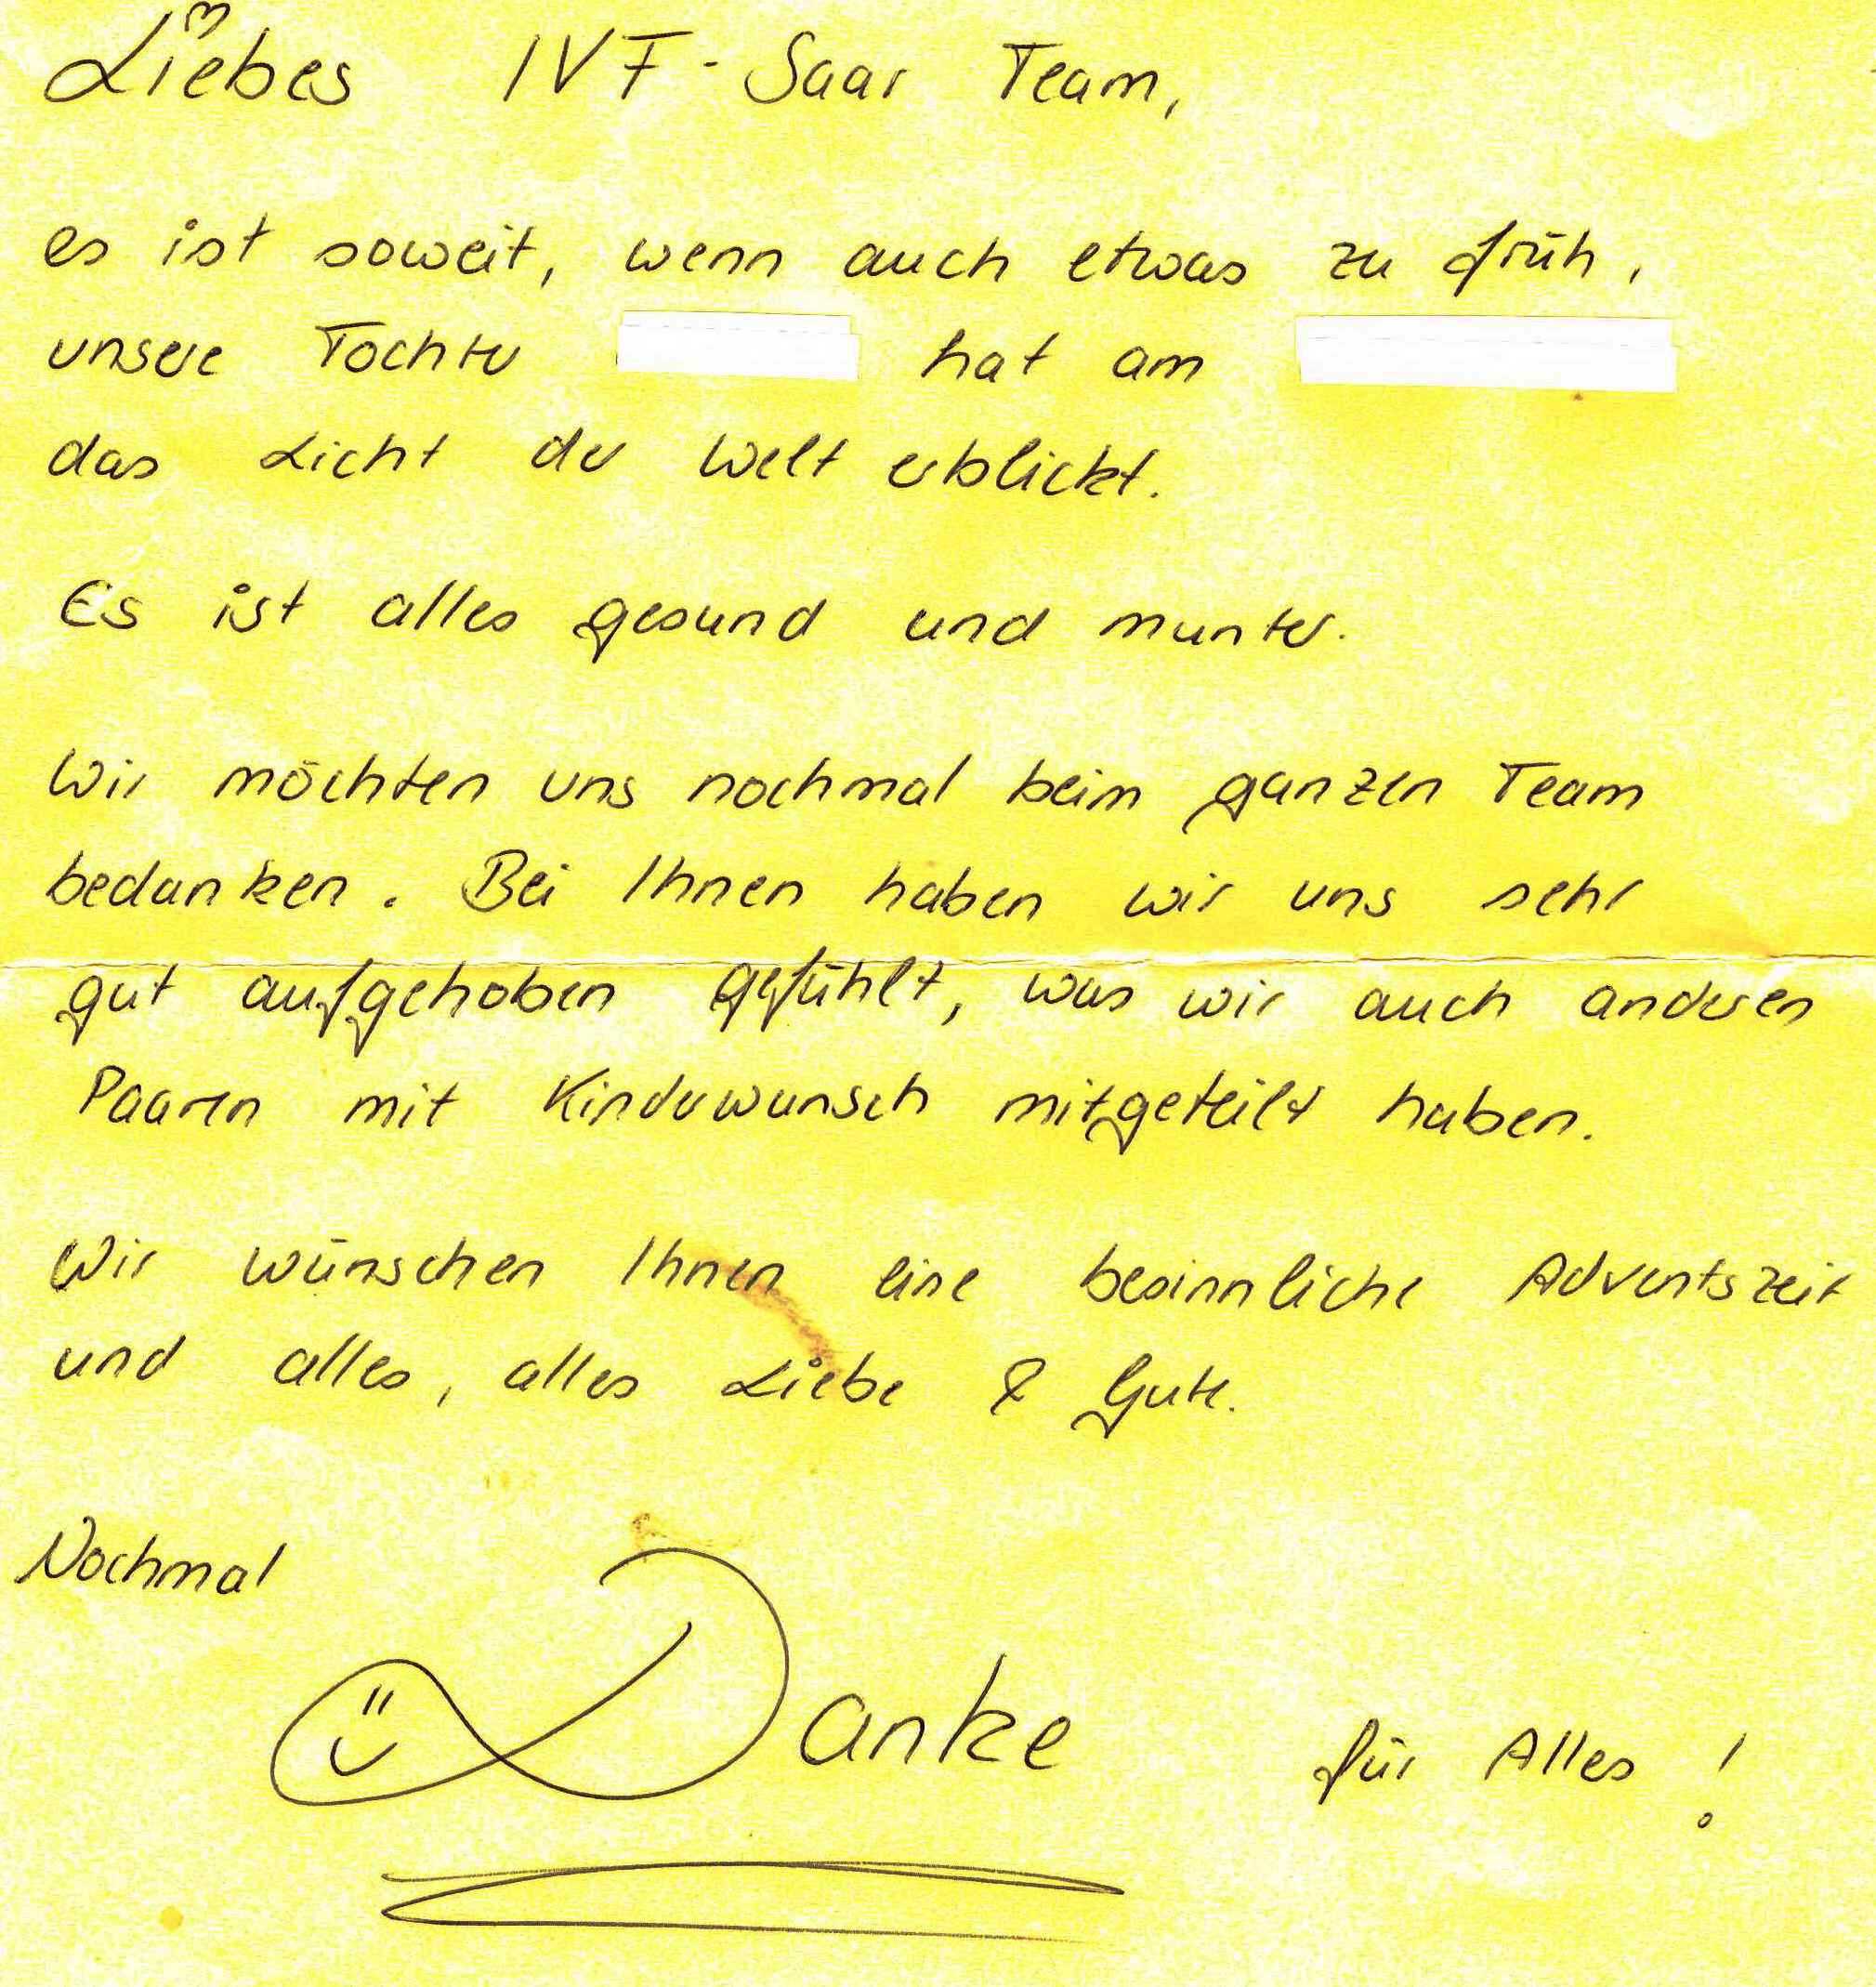 Liebes IVF-Saar Team,
es ist soweit, wenn auch etwas zu früh,
unsere Tochter hat am
das Licht der Welt erblickt.
Es ist alles gesund und munter.
Wir möchten uns nochmal beim ganzen Team
bedanken. Bei Ihnen haben wir uns sehr
gut aufgehoben gefühlt, was wir auch anderen
Paaren mit Kinderwunsch mitgeteilt haben.
Wir wünschen Ihnen eine besinnliche Adventszeit
und alles, alles Liebe & Gute.
Nochmal
Danke für Alles!